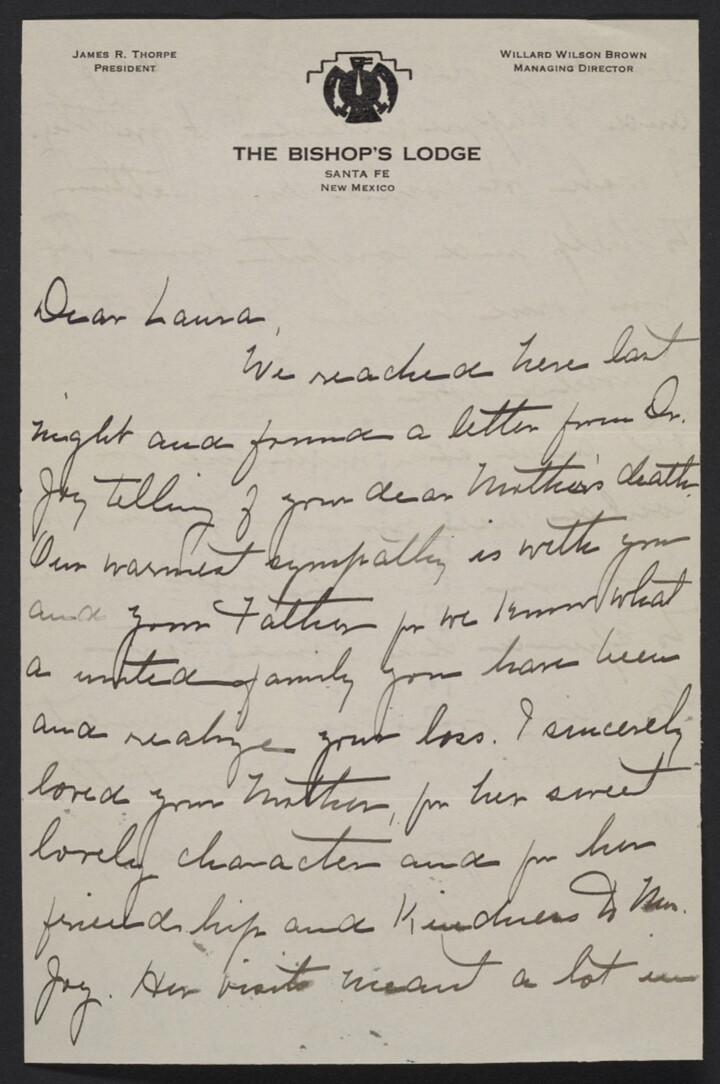 James R. Thorpe
President
Willard Wilson Brown
Managing Director
The Bishop's Lodge
Santa Fe
New Mexico
Dear Laura,
We reached here last
night and found a letter from Dr.
Joy telling of your dear Mother's death.
Our warmest sympathy is with you
and your Father for we know what
a united family you have been
and realize your loss. I sincerely
loved your Mother, for her sweet
lovely character and for her
friendship and kindness to Mrs.
Joy. Her visits meant a lot in